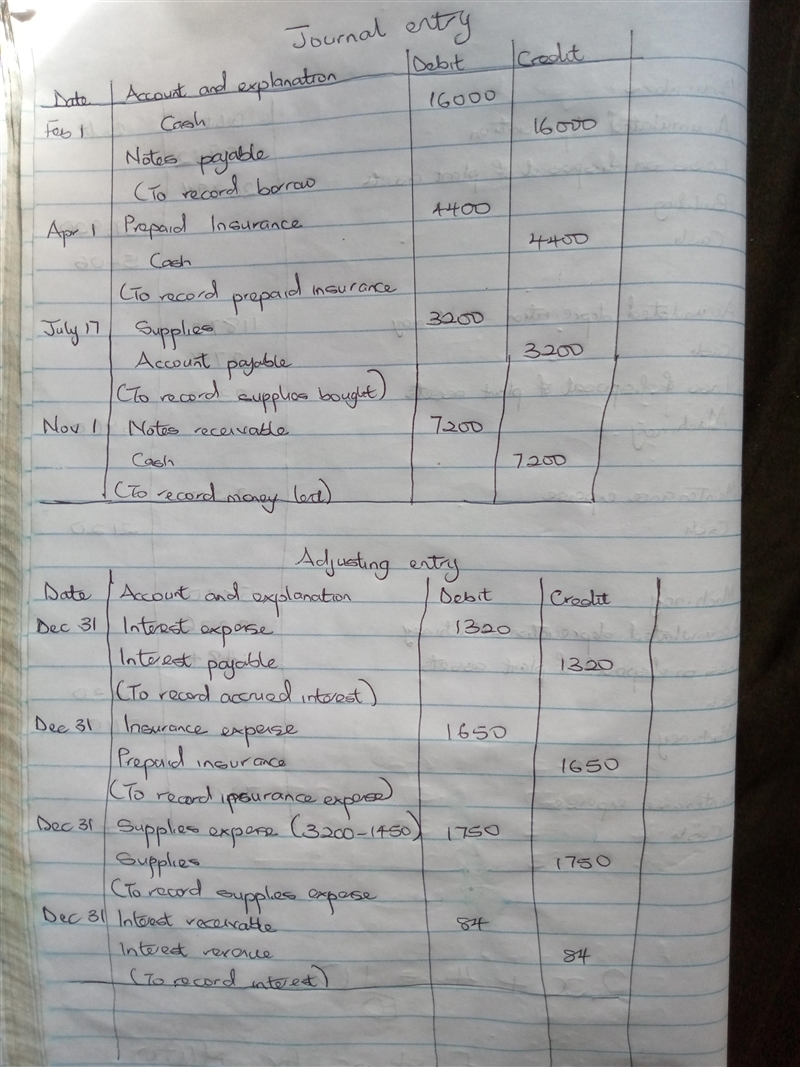 Journal entry
Date Account and explanation Debit Credit
Feb 1 Cash 16000
16000
Notes payable
(To record borrow
Apr 1 Prepaid Insurance 4400
Cash 4400
(To record prepaid insurance
July 17 Supplies 3200
Account payable 3200
(To record supplies bought)
Nov 1 Notes receivable 7200
Cash 7200
(To record money lent)
Adjusting entry
Date Account and explanation Debit Credit
Dec 31 Interest expense 1320
Interest payable 1320
(To record accrued interest)
Dec 31 Insurance expense 1650
Prepaid insurance 1650
(To record insurance expense)
Dec 31 Supplies expense (3200-1450) 1750
Supplies 1750
(To record supplies expense
Dec 31 Interest receivable 84
Interest revenue 84
(To record interest)